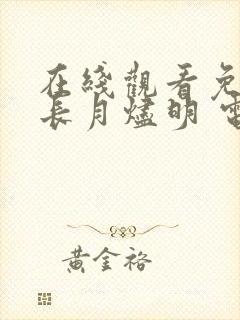 在綫觀看免
長月燼明 電
黃金裕